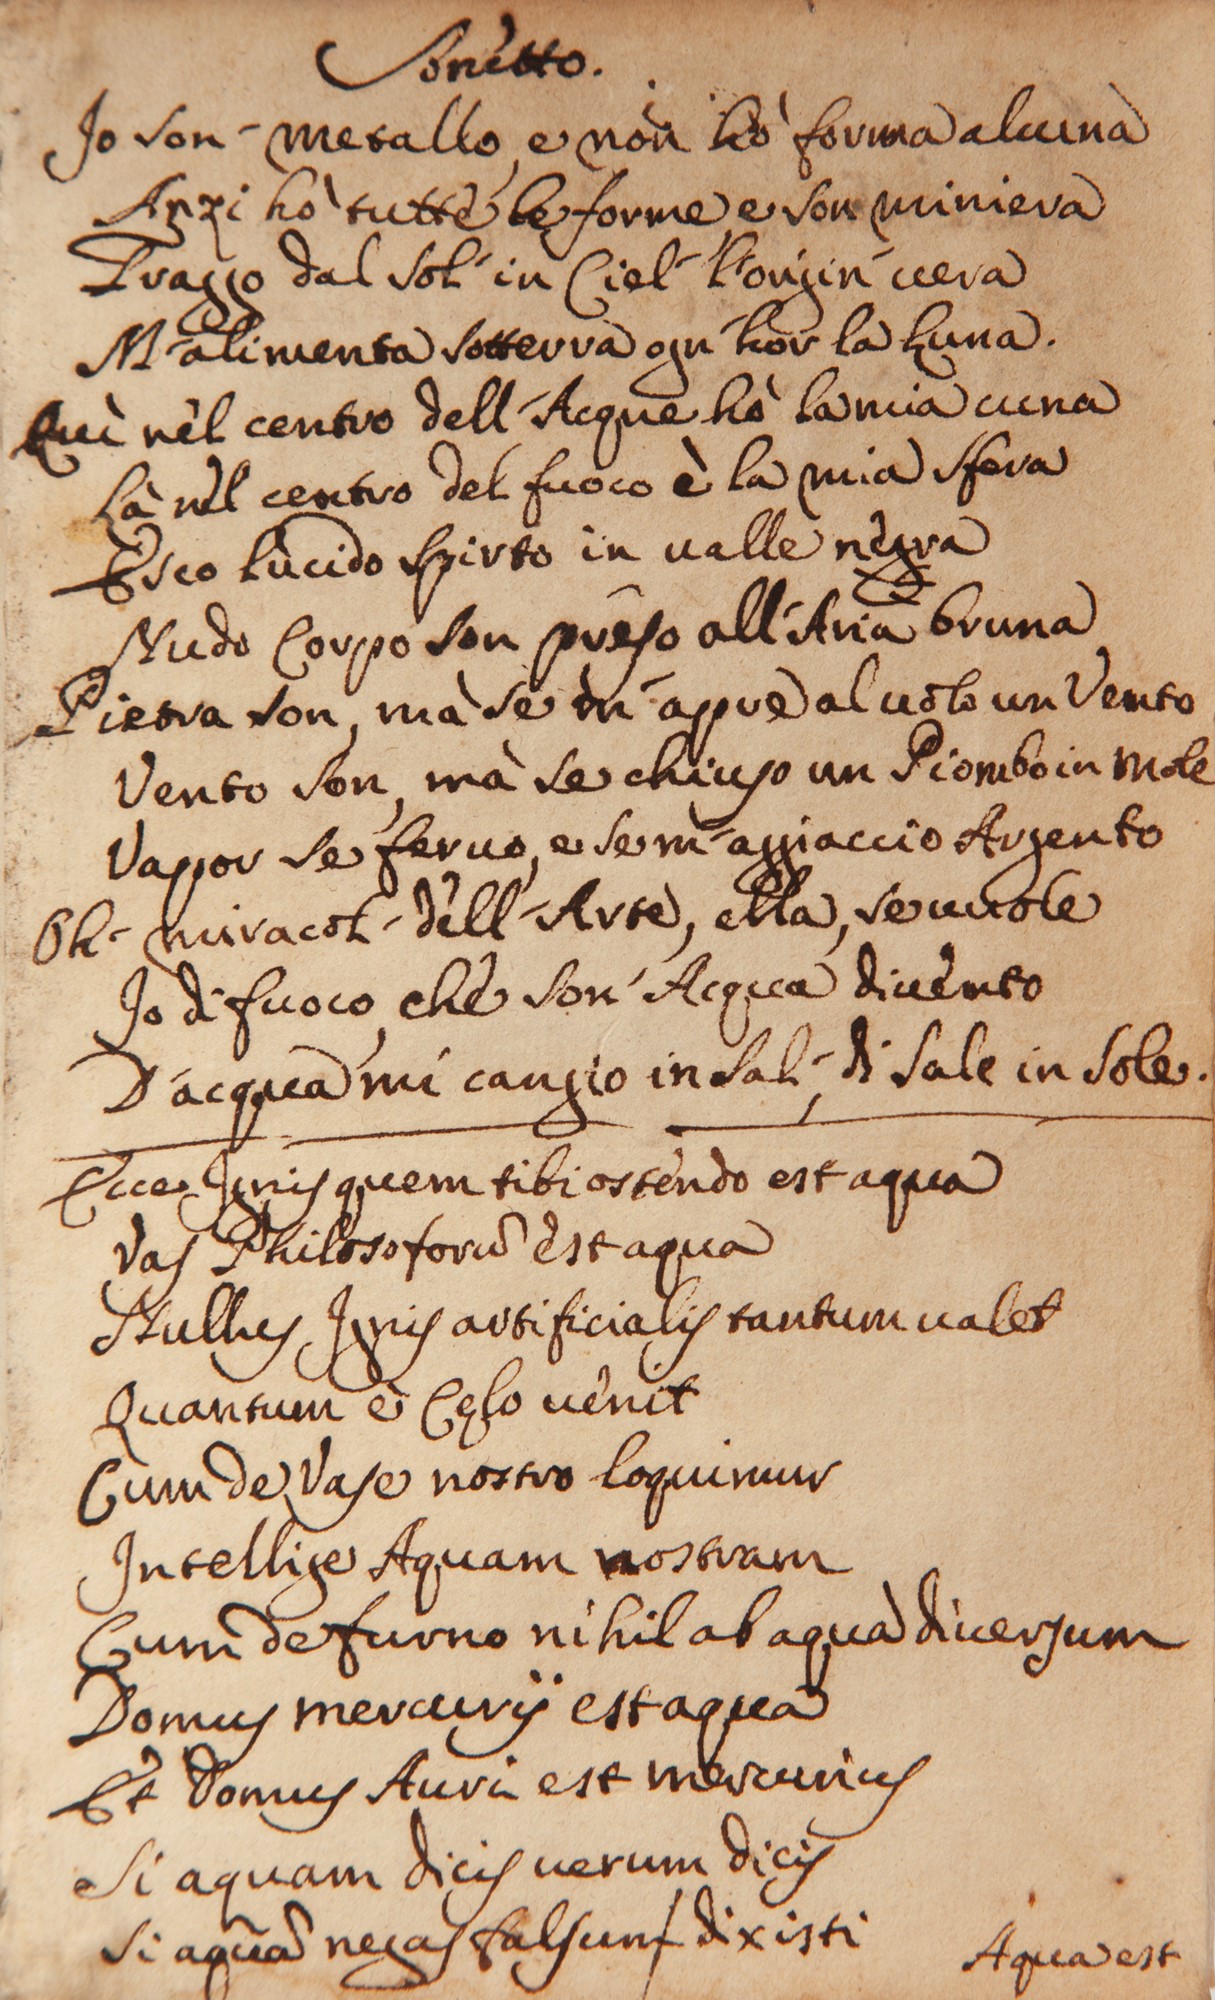 Sonetto.
Jo son metallo, e non hò forma alcuna
Anzi hò tutte le forme, e son miniera
Traggo dal Sol' in Ciel' l'origin' uera
M'alimenta sotterra ogn'hor la Luna.
Quì nel centro dell'Acque hò la mia cuna
Là nel centro del fuoco è la mia sfera
Esco lucido spirto in ualle negra
Nudo Corpo son preso all'Aria bruna
Pietra son, mà se m'apre al uolo un Vento
Vento son, mà se chiuso un Piombo in mole
Vapor se feruo, e se m'agiaccio Argento
Oh miracol' dell'Arte, ella, se uuole
Jo di fuoco, che son' Acqua diuento
D'acqua mi cangio in Sal', di Sale in Sole.
Ecce Ignis quem tibi ostendo est aqua
Vas Philosoforũ est aqua
Nullus Ignis artificialis tantum ualet
Quantum è Cęlo uenit
Cum de Vase nostro loquimur
Intellige Aquam nostram
Cum de furno nihil ab aqua diuersum
Domus mercurij est aqua
Et Domus Auri est mercurius
Si aquam dicis uerum dicis
Si aquã negas falsum dixisti
Aqua est